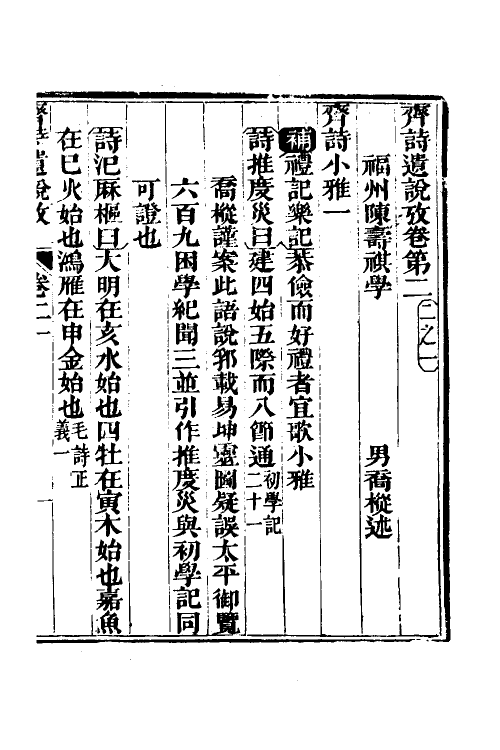 齊詩遺說攷卷第二 二之一
福州陳壽祺學 男喬樅述
齊詩小雅一
補禮記樂記恭儉而好禮者宜歌小雅
詩推度災曰建四始五際而八節通初學記二十一
喬樅謹案此語說郛載易坤靈圖疑誤太平御覽
六百九困學紀聞三並引作推度災與初學記同
可證也
詩汜麻樞曰大明在亥水始也四牡在寅木始也嘉魚
在巳火始也鴻雁在申金始也毛詩正義一
齊詩遺說攷 卷二 一